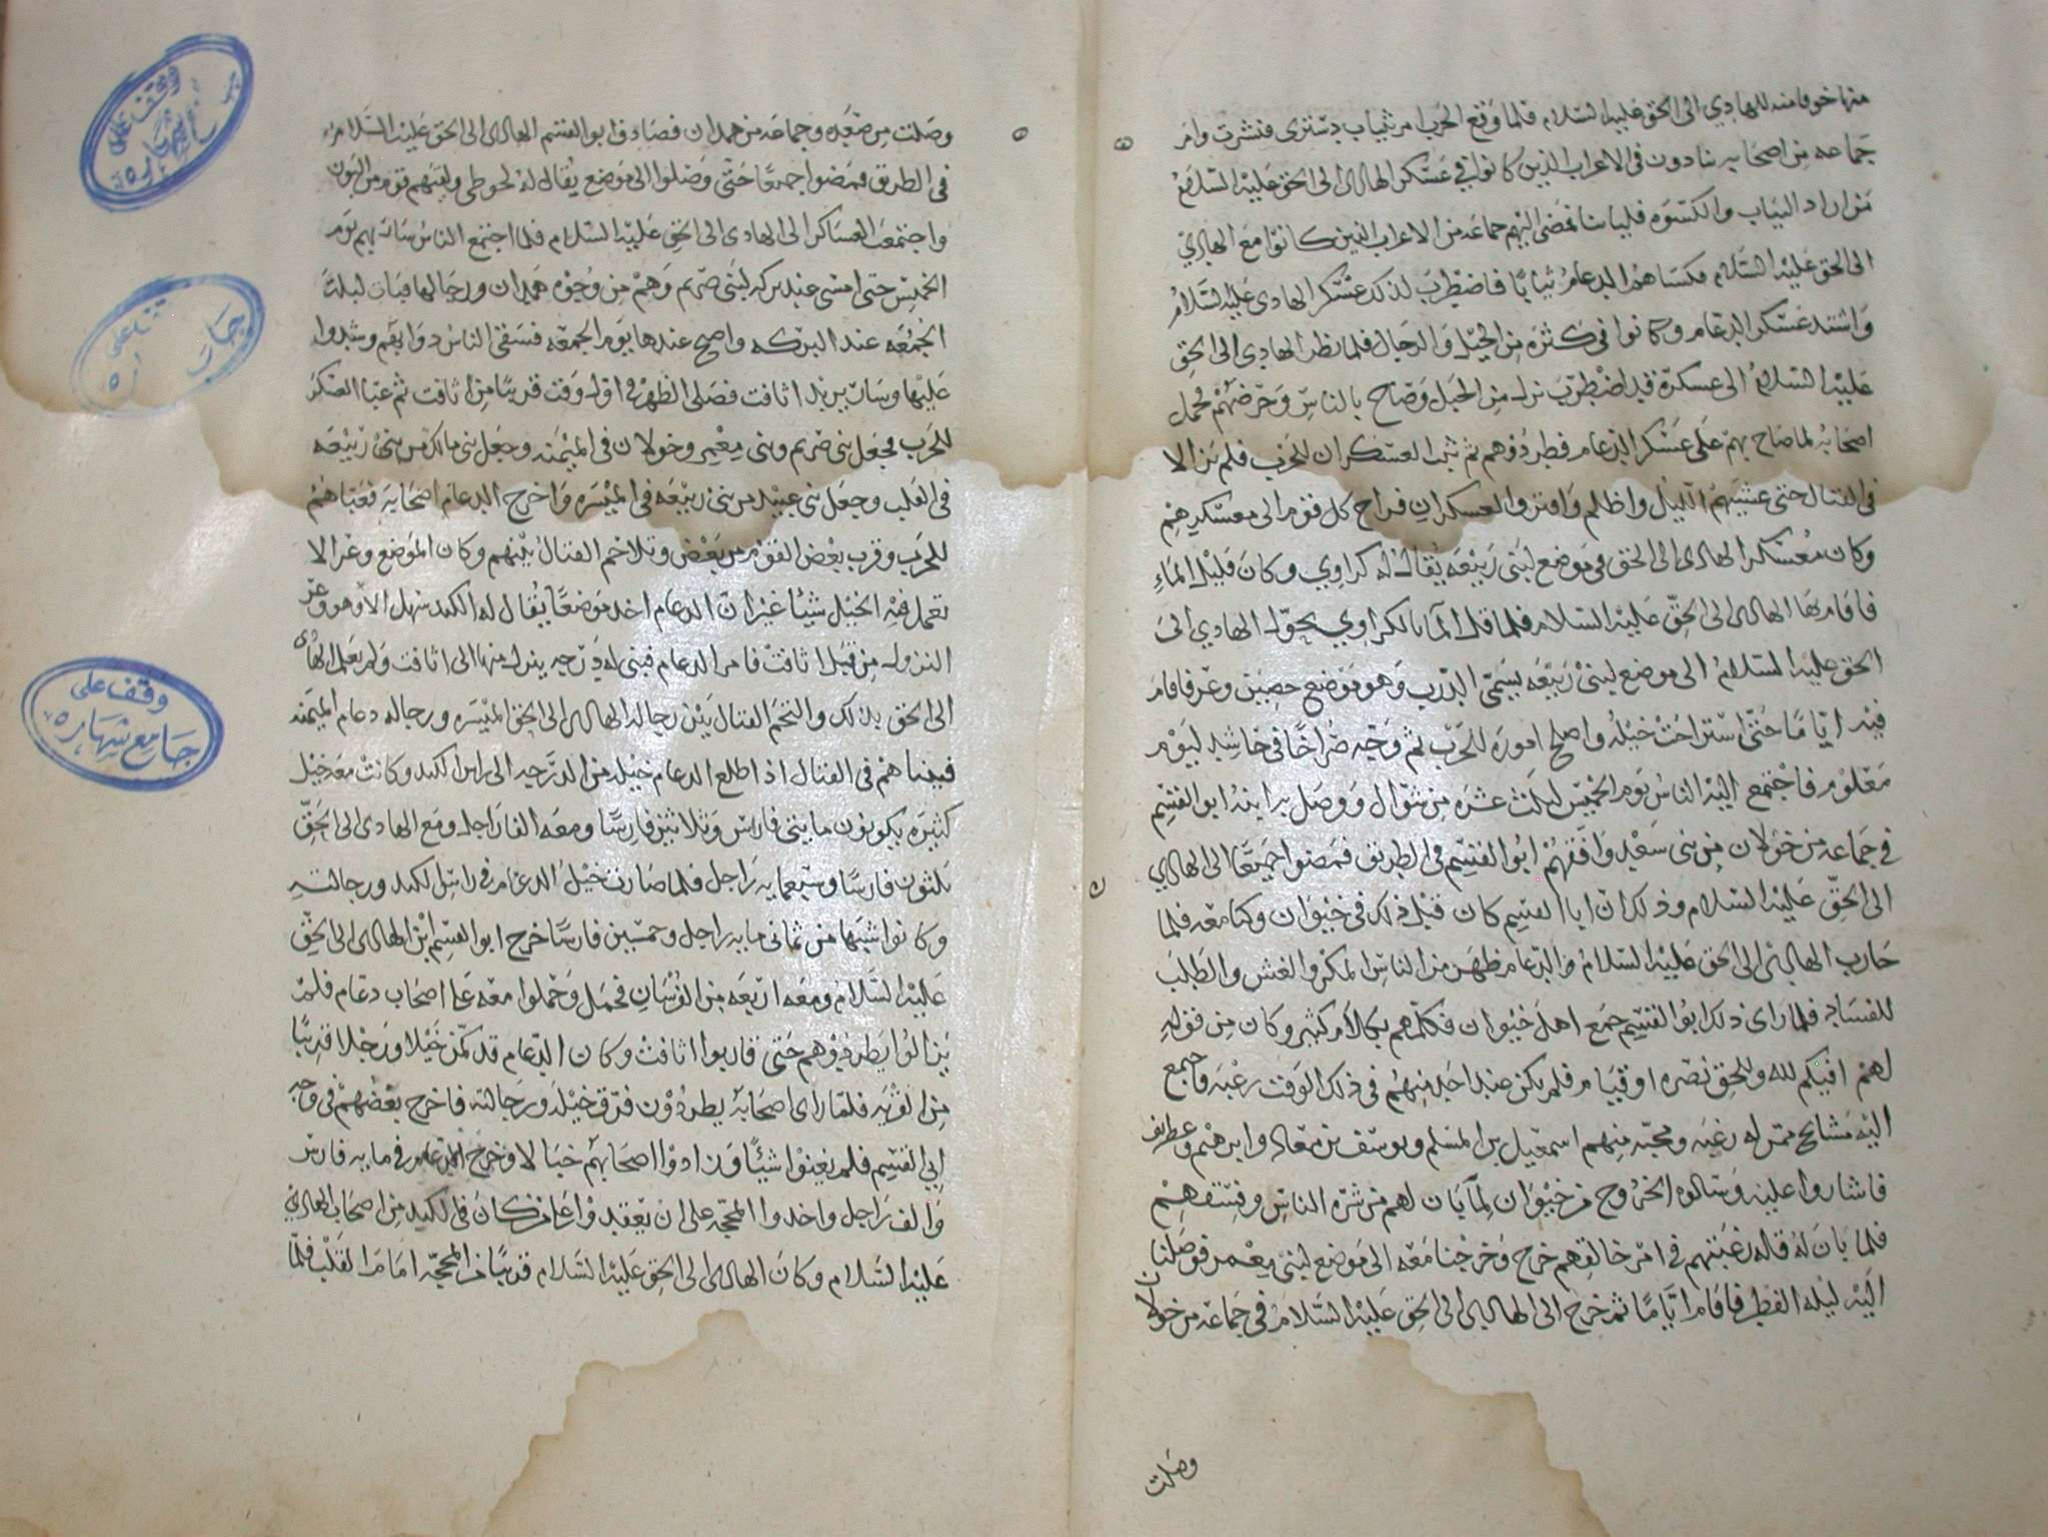 منها خوفا منه للهادي الى الحق عليه السلام فلما وقع الحرب امر بثياب دستري فنشرت وامر
جماعه من اصحابه ينادون فى الاعراب الذين كانوا في عسكر الهادى الى الحق عليه السلام
من اراد الثياب والكسوه فلياتنا فمضى اليهم جماعه من الاعراب الذين كانوا مع الهادي
الى الحق عليه السلام فكساهم الدعام ثيابا فاضطرب لذلك عسكر الهادى عليه السلام
واشتد عسكر الدعام وكانوا في كثره من الخيل والرجال فلما نظر الهادي الى الحق
عليه السلام الى عسكره قد اضطرب نزل من الجبل وصاح بالناس وحرضهم فحمل
اصحابه لما صاح بهم على عسكر الدعام فطردوهم ثم ثبت العسكران للحرب فلم يزالا
فى القتال حتى غشيهم الليل واظلم وافترق العسكران فراح كل قوم الى معسكرهم
وكان معسكر الهادى الى الحق في موضع لبنى ربيعه يقال له كراوي وكان قليل الماء
فاقام بها الهادى الى الحق عليه السلام فلما قل الماء بالكراوي تحول الهادي الى
الحق عليه السلام الى موضع لبنى ربيعه يسمى الدرب وهو موضع حصين وعر فاقام
فيه اياما حتى استراحت خيله واصلح اموره للحرب ثم وجه صراخا في حاشد ليوم
معلوم فاجتمع اليه الناس يوم الخميس لثلث عشره من شوال ووصل به ابنه ابو القسيم
في جماعه من خولان من بنى سعد وافقهم ابو القسيم في الطريق فمضوا جميعا الى الهادي
الى الحق عليه السلام وذلك ان ابا القسيم كان قبل ذلك في خيوان وكنا معه فلما
حارب الهادى الى الحق عليه السلام والدعام ظهر من الناس المكر والغش والطلب
للفساد فلما راى ذلك ابو القسيم جمع اهل خيوان فكلمهم بكلام كثير وكان من قوله
لهم افيكم لله وللحق نصره او قيام فلم يكن عند احد منهم في ذلك الوقت رغبه واجتمع
اليه مشايخ ممن له رغبه ومحبه منهم اسمعيل بن المسلم ويوسف بن معالى وابرهيم وعطريف
فاشاروا عليه وسالوه الخروج من خيوان لما بان لهم من شره الناس وفسقهم
فلما بان له قله رغبتهم في امر خالقهم خرج وخرجنا معه الى موضع لبنى يعمر فوصلنا
اليه ليله الفطر فاقام اياما ثم خرج الى الهادى الى الحق عليه السلام في جماعه من خولان
وصلت
وصلت من صعده وجماعه من همدان فصادف ابو القسم الهادى الى الحق عليه السلام
فى الطريق فمضوا جميعا حتى وصلوا الى موضع يقال له لحوطي ولقيهم قوم من البون
واجتمعت العساكر الى الهادى الى الحق عليه السلام فلما اجتمع الناس سار بهم يوم
الخميس حتى امسى عند بركه لبنى صريم وهم من وجوه همدان ورجالها فبات ليله
الجمعه عند البركه واصبح عندها يوم الجمعه فسقى الناس دوابهم وشدوا
عليها وسار يريد اثافت فصلى الظهر في اول وقت قريبا من اثافت ثم عبا العسكر
للحرب فجعل بنى صريم وبنى معمر وخولان في الميمنه وجعل بنى مالك من بنى ربيعه
في القلب وجعل بنى عبيد من بنى ربيعه في الميسره واخرج الدعام اصحابه فعباهم
للحرب وقرب بعض القوم من بعض وتلاحم القتال بينهم وكان الموضع وعرا لا
تعمل فيه الخيل شيئا غير ان الدعام اخذ موضعا يقال له الكبد سهل الا وهو وعر
النزول من قبل اثافت فامر الدعام فبنى له درجه ينزل منها الى اثافت ولم يعلم الهادى
الى الحق بذلك والتحم القتال بين رجاله الهادى الى الحق الميسره ورجاله دعام الميمنه
فبينا هم في القتال اذ اطلع الدعام خيله من الدرجه الى راس الكبد وكانت معه خيل
كثيره يكونون مايتى فارس وثلاثين فارسا ومعه الفا راجل ومع الهادى الى الحق
ثلثون فارسا وسبعمايه راجل فلما صارت خيل الدعام في راس الكبد ورجالته
وكانوا شبيها من ثمانى مايه راجل وخمسين فارسا خرج ابو القسم ابن الهادى الى الحق
عليه السلام ومعه اربعه من الفرسان فحمل وحملوا معه على اصحاب دعام فلم
يزالوا يطردوهم حتى قاربوا اثافت وكان الدعام قد كمن خيلا ورجلا قريبا
من القريه فلما راى اصحابه يطردون فرق خيله ورجالته فاخرج بعضهم في وجه
ابي القسيم فلم يغنوا شيئا وزادوا اصحابهم خبالا وخرج الدعام في مايه فارس
والف راجل واخذوا المحجه على ان يعقبوا على من كان في الكبد من اصحاب الهادي
عليه السلام وكان الهادى الى الحق عليه السلام قريبا من المحجه امام القلب فلما
وقف على
جامع شهاره
وقف على
جامع شهاره